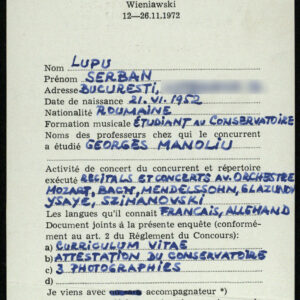 Wieniawski
12—26.11.1972
Nom LUPU
Prénom SERBAN
Adresse BUCURESTI,
Date de naissance 21.VI.1952
Nationalité ROUMAINE
Formation musicale ÉTUDIANT AU CONSERVATOIRE
Noms des professeurs chez qui le concurrent
a étudié GEORGES MANOLIU
Activité de concert du concurrent et répertoire
exécuté RÉCITALS ET CONCERTS AV. ORCHESTRE
MOZART, BACH, MENDELSSOHN, GLAZUNOV
YSAYE, SZIMANOVSKI
Les langues qu'il connait FRANÇAIS, ALLEMAND
Document joints á la présente enquête (conformé-
ment au art. 2 du Règlement du Concours):
a) CURRICULUM VITAE
b) ATTESTATION DU CONSERVATOIRE
c) 3 PHOTOGRAPHIES
d)
Je viens avec accompagnateur *)